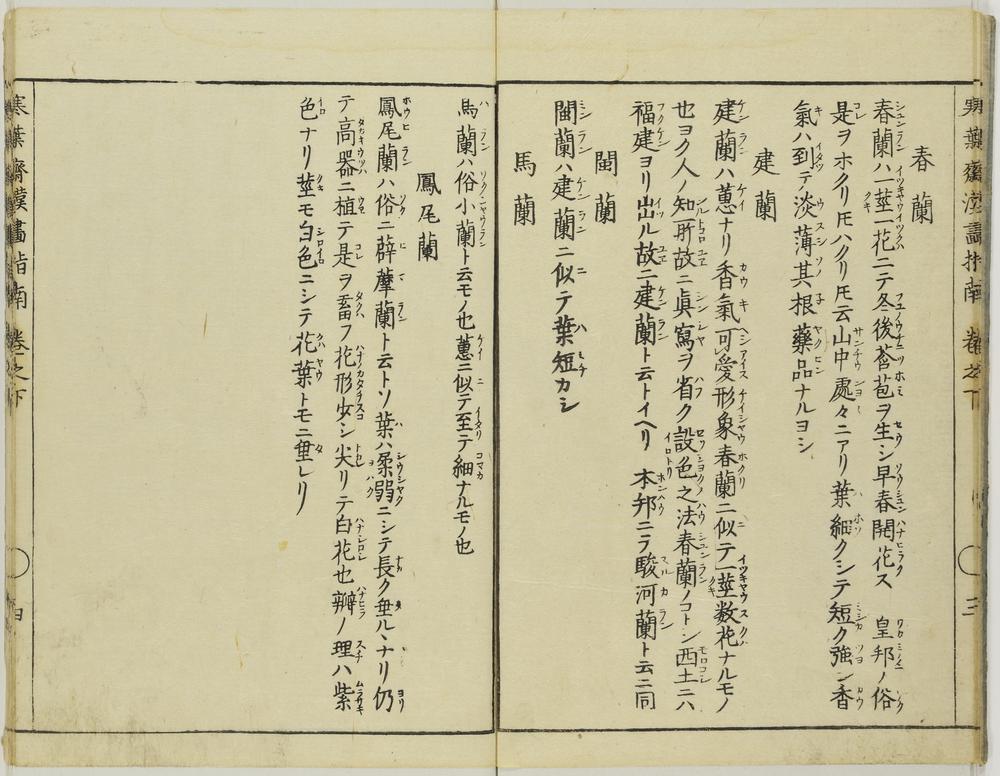 春蘭
春蘭ハ一莖一花ニテ冬後莟苞ヲ生シ早春開花ス 皇邦ノ俗
是ヲホクリ𪜈ハクリ𪜈云山中處々ニアリ葉細クシテ短ク強シ香
氣ハ到テ淡薄其根藥品ナルヨシ
建蘭
建蘭ハ蕙ナリ香氣可愛形象春蘭ニ似テ一莖数花ナルモノ
也ヨク人ノ知所故ニ眞寫ヲ省ク設色之法春蘭ノコトシ西土ニハ
福建ヨリ出ル故ニ建蘭ト云トイヘリ 本邦ニテ駿河蘭ト云ニ同
閩蘭
閩蘭ハ建蘭ニ似テ葉短カシ
馬蘭
馬蘭ハ俗小蘭ト云モノ也蕙ニ似テ至テ細ナルモノ也
鳳尾蘭
鳳尾蘭ハ俗ニ薜蘭ト云トソ葉ハ柔弱ニシテ長ク垂ルヽナリ仍
テ高器ニ植テ是ヲ畜フ花形少シ尖リテ白花也瓣ノ理ハ紫
色ナリ莖モ白色ニシテ花葉トモニ垂レリ
寒葉齋漢畫指南 卷之下 四